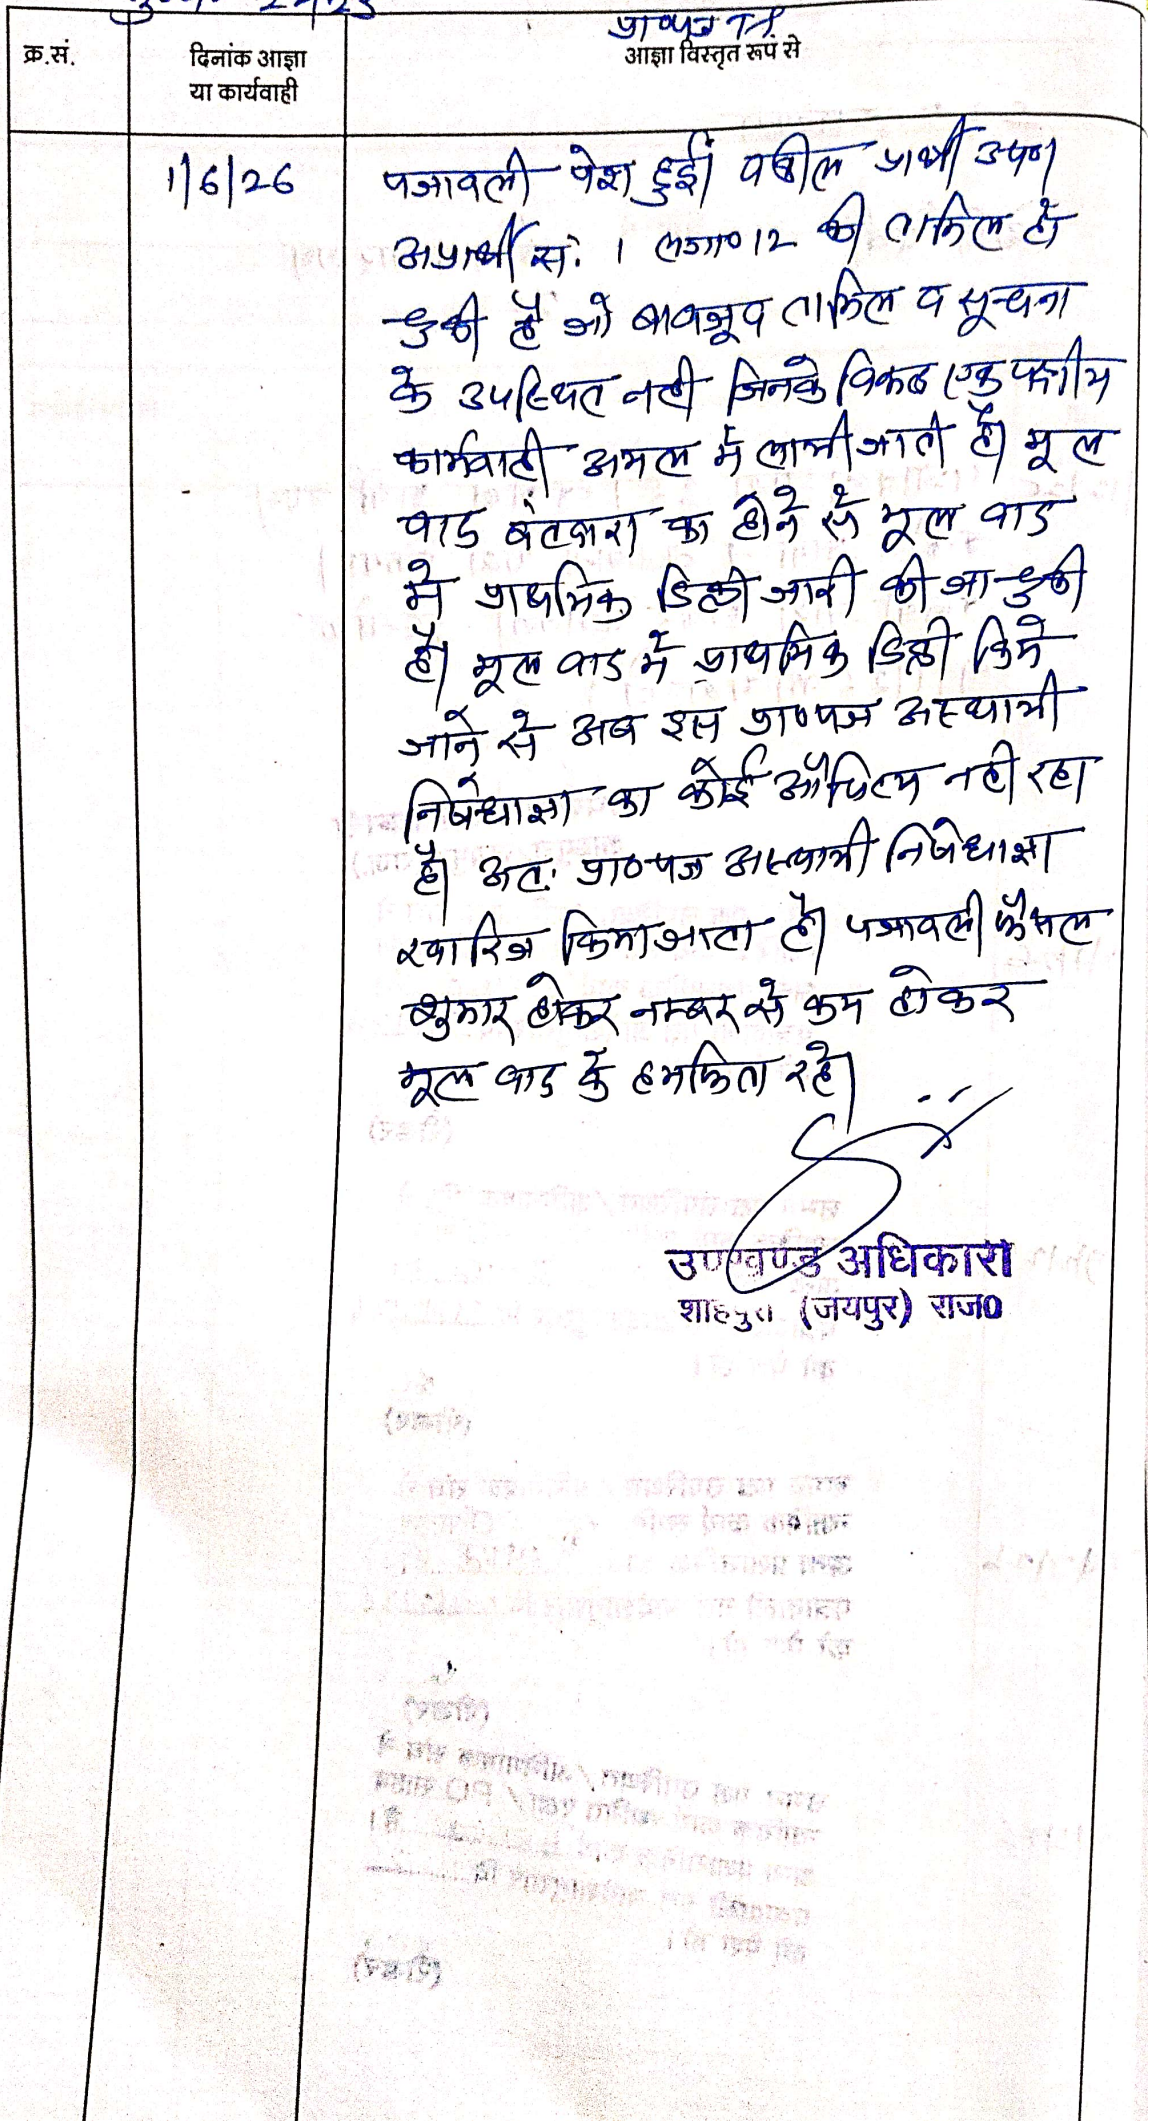 प्रा०पत्र T.I.
क्र.सं.
दिनांक आज्ञा
या कार्यवाही
आज्ञा विस्तृत रूप से
1/6/26
पत्रावली पेश हुई। वकील प्रार्थी उप०।
अप्रार्थी सं. 1 लगा० 12 की तामिल हो
चुकी है जो बावजूद तामिल व सूचना
के उपस्थित नही जिनके विरूद्ध एक पक्षीय
कार्यवाही अमल में लायी जाती है। मूल
वाद बंटवारा का होने से मूल वाद
मे प्राथमिक डिक्री जारी की जा चुकी
है। मूल वाद में प्राथमिक डिक्री किये
जाने से अब इस प्रा०पत्र अस्थायी
निषेधाज्ञा का कोई औचित्य नही रहा
है। अतः प्रा०पत्र अस्थायी निषेधाज्ञा
खारिज किया जाता है। पत्रावली फैसल
शुमार होकर नम्बर से कम होकर
मूल वाद के हमफिता रहे।
उपखण्ड अधिकारी
शाहपुरा (जयपुर) राज0